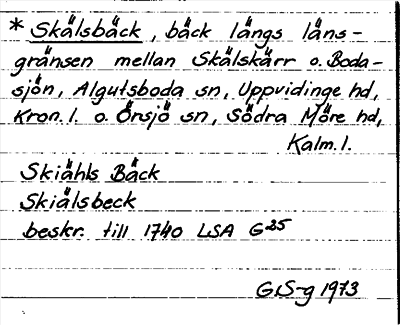 * Skälsbäck, bäck längs läns-
gränsen mellan Skälskärr o. Boda-
sjön, Algutsboda sn, Uppvidinge hd,
Kron. l. o. Örsjö sn, Södra Möre hd,
Kalm. l.
Skiähls Bäck
Skiälsbeck
beskr. till 1740 LSA G25
G.S-g 1973